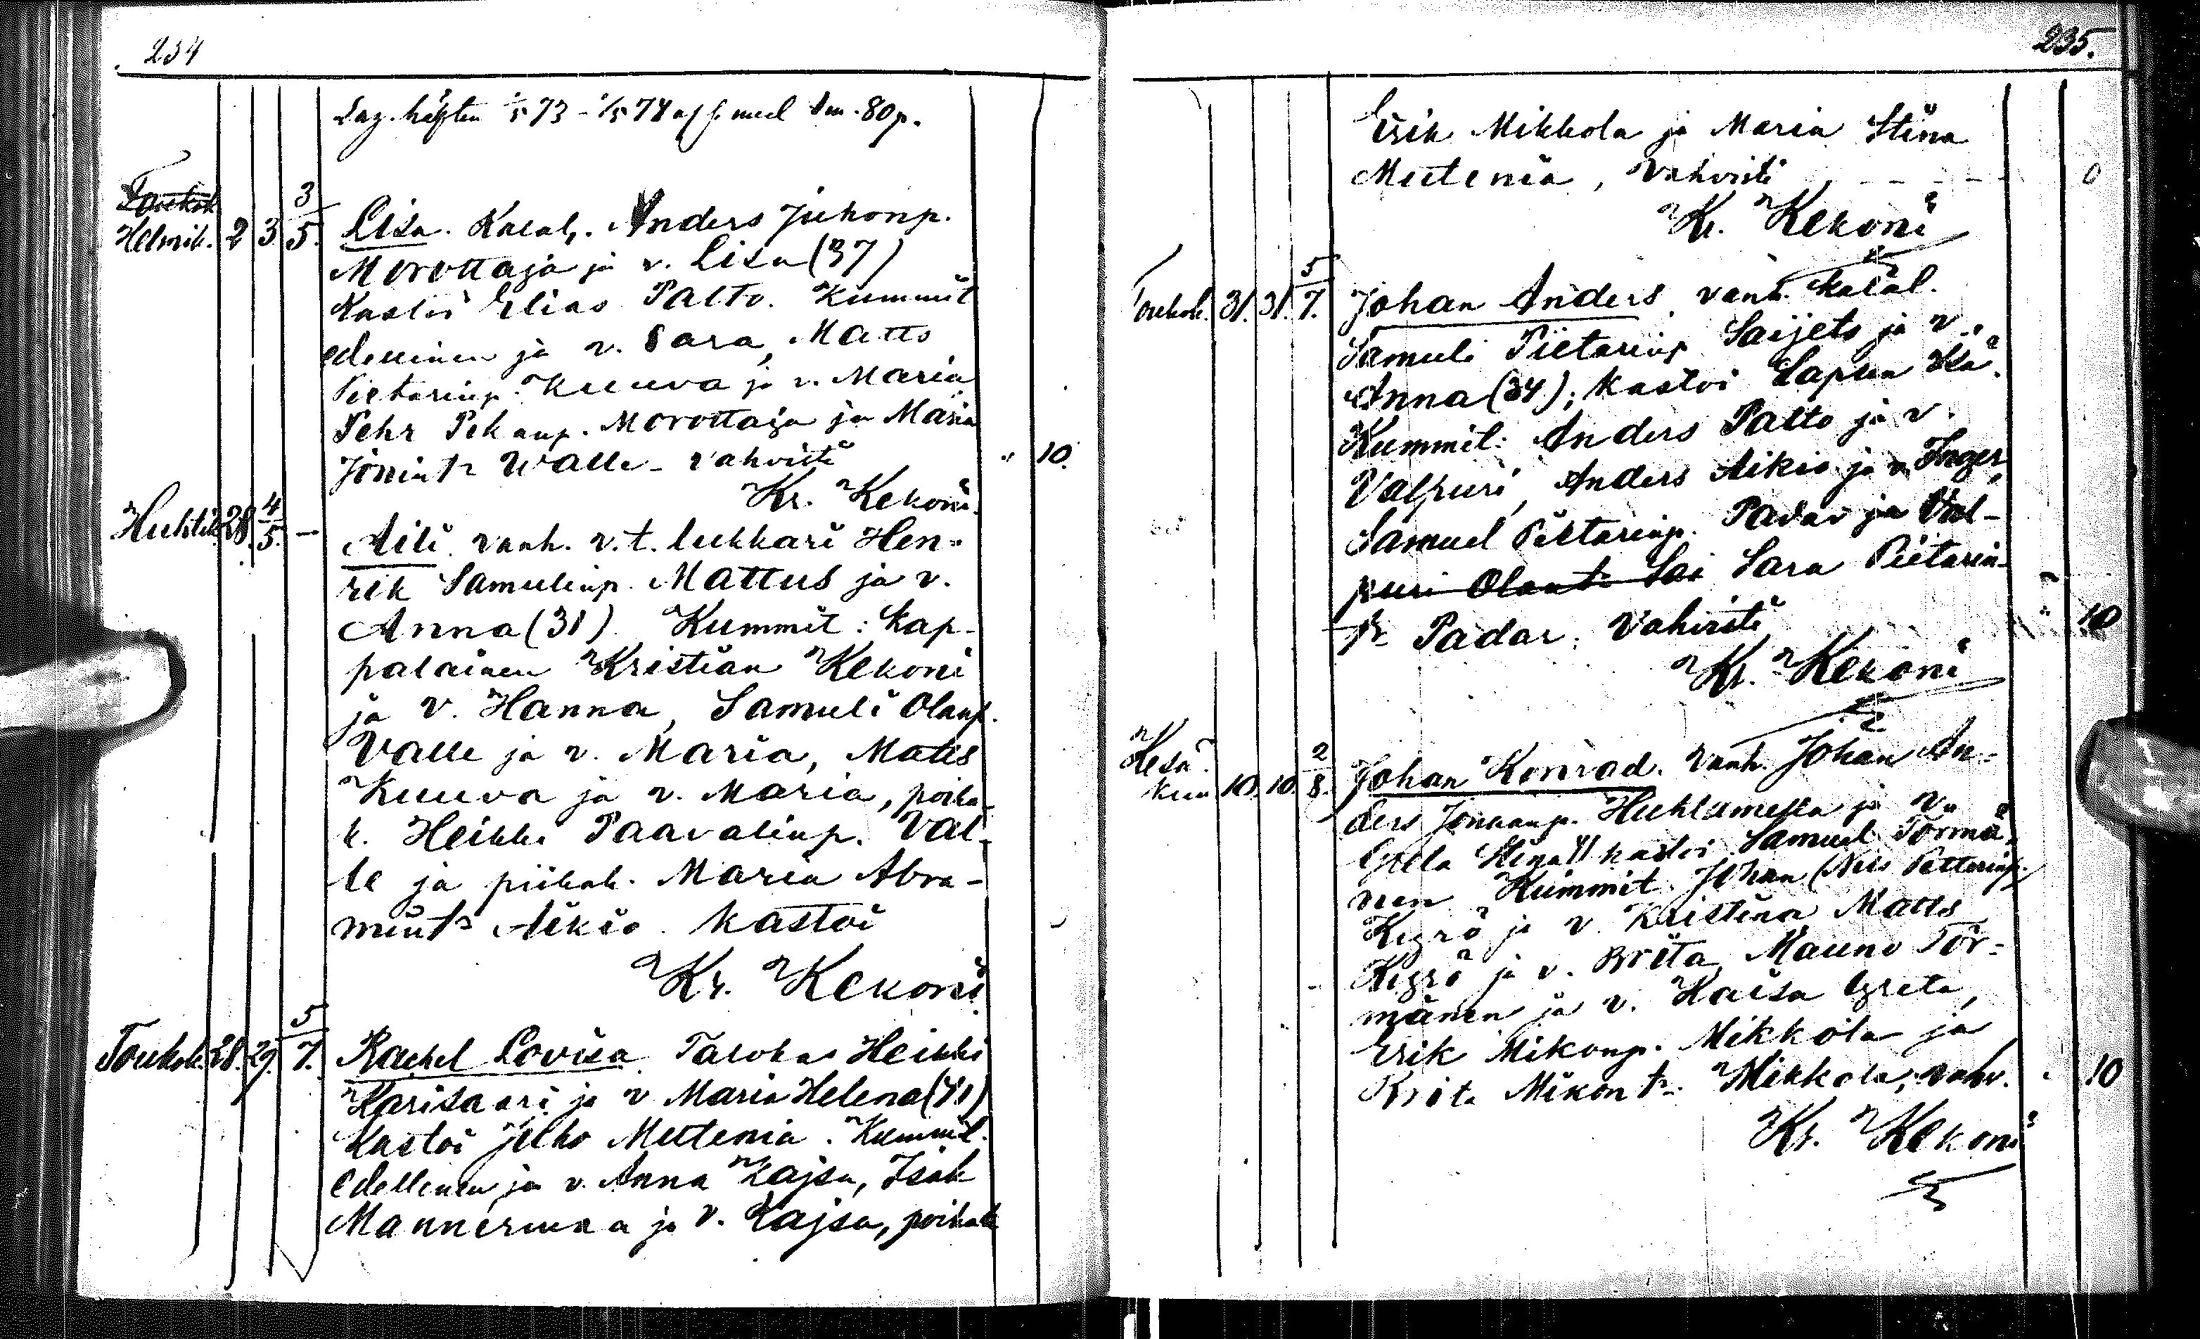 234
Lag. häfsten 1/5 73 - 1/5 74 af f. med 8 m. 80 p.
Toukok
Helmik. 2 3 3/5. Lisa. Kalal. Anders Juhonp.
Morottaja ja v. Lisa (37)
Kastoi Elias Palto. Kummit
edellinen ja v. Sara, Matts
Pietarinp. Kuuva ja v. Maria
Pehr Pekanp. Morottaja ja Maria
Jonint:r Walle - vahvisti " 10.
Kr. Kekoni.
Huhtik. 28. 4/5. — Aili. vanh. v.t. lukkari Hen-
rik Samulinp. Mattus ja v.
Anna (31) Kummit: kap-
palainen Kristian Kekoni
ja v. Hanna, Samuli Olanp.
Valle ja v. Maria, Matts
Kuuva ja v. Maria, poika-
k. Heikki Paavalinp. Val-
le ja piikak. Maria Abra-
mint:r Aikio. kastoi
Kr. Kekoni
Toukok. 28. 29. 5/7. Rachel Lovisa. Talokas Heikki
Karisaari ja v Maria Helena (41)
Kastoi Juho Mutenia. Kummit.
edellinen ja v. Anna Kajsa, Isak
Mannermaa ja v. Kajsa, poikak
235.
Erik Mikkola ja Maria Stina
Mutenia, vahvisti - - - - 0
Kr. Kekoni
Toukok. 31. 31. 5/7. Johan Anders. vanh. kalal.
Samuli Pietarinp Saijets ja v.
Anna (34); kastoi Lapsen Isä.
Kummit: Anders Palto ja v.
Valpuri, Anders Aikio ja v. Inger,
Samuel Pietarinp. Padar ja Val-
puri Olant: Sai Sara Pietarin-
t:r Padar. Vahvisti " 10
Kr. Kekoni
Kesä-
kuu 10. 10. 2/8. Johan Konrad. Vanh. Johan An-
ders Jonanp. Huhtamella ja v.
Greta Stina 41 kastoi Samuel Törmä-
nen Kummit. Johan (Nils Petterinp.)
Kyrö ja v. Kristina Matts
Kyrö ja v. Brita, Mauno Tör-
mänen ja v. Kaisa Greta,
Erik Mikonp. Mikkola ja
Brita Mikont:r Mikkola, vahv. " 10
Kr. Kekoni